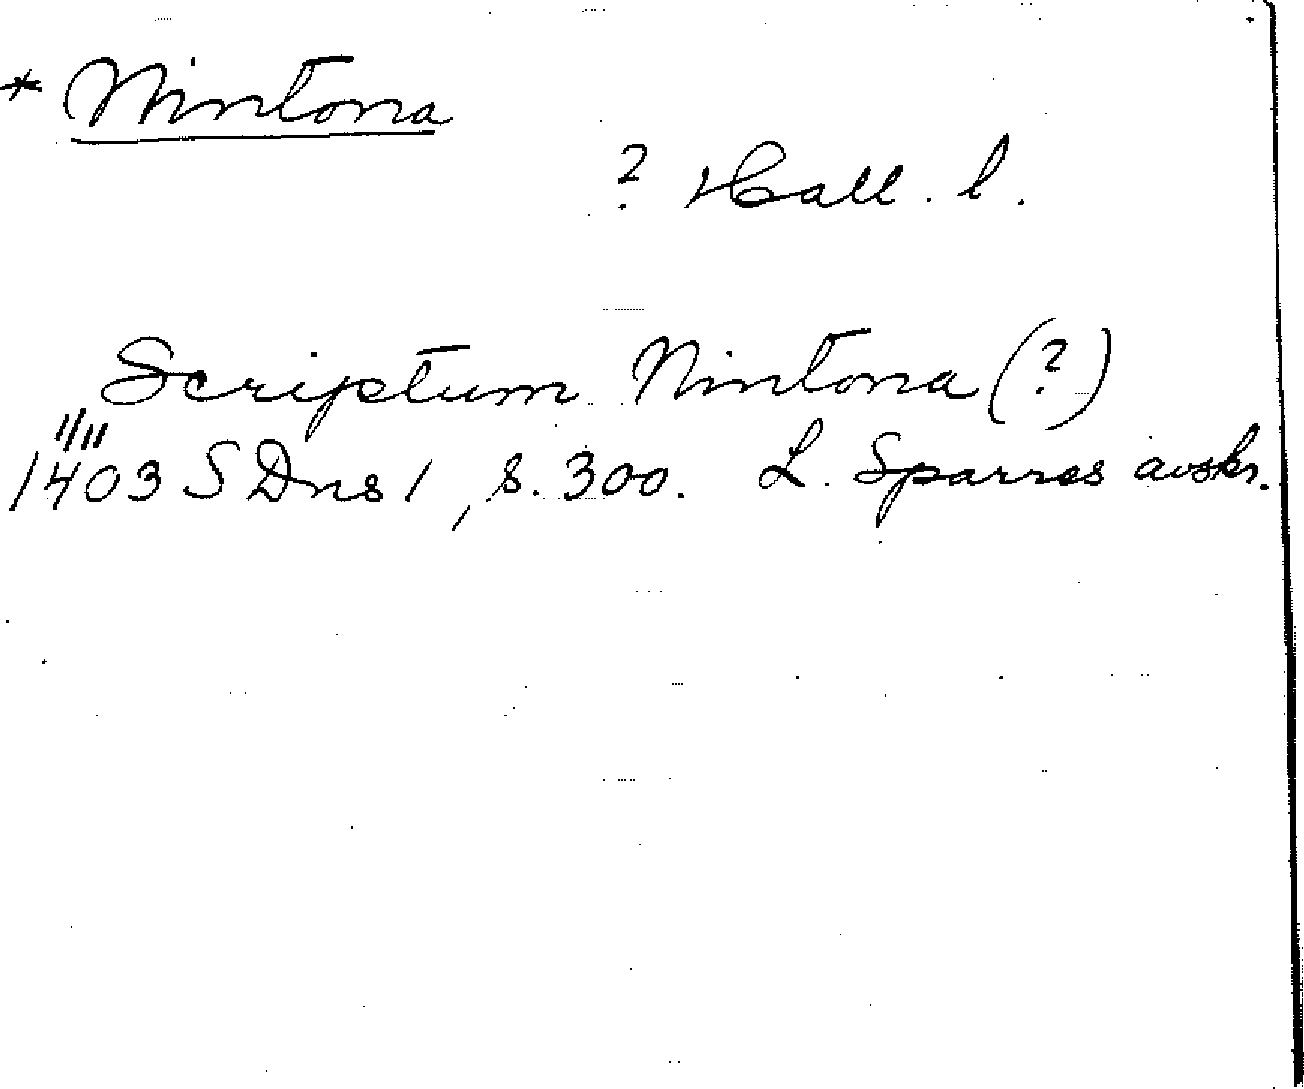 * Nintona
? Hall. l.
Scriptum Nintona (?)
11/11
1403 SDns 1, s. 300. L. Sparres avskr.